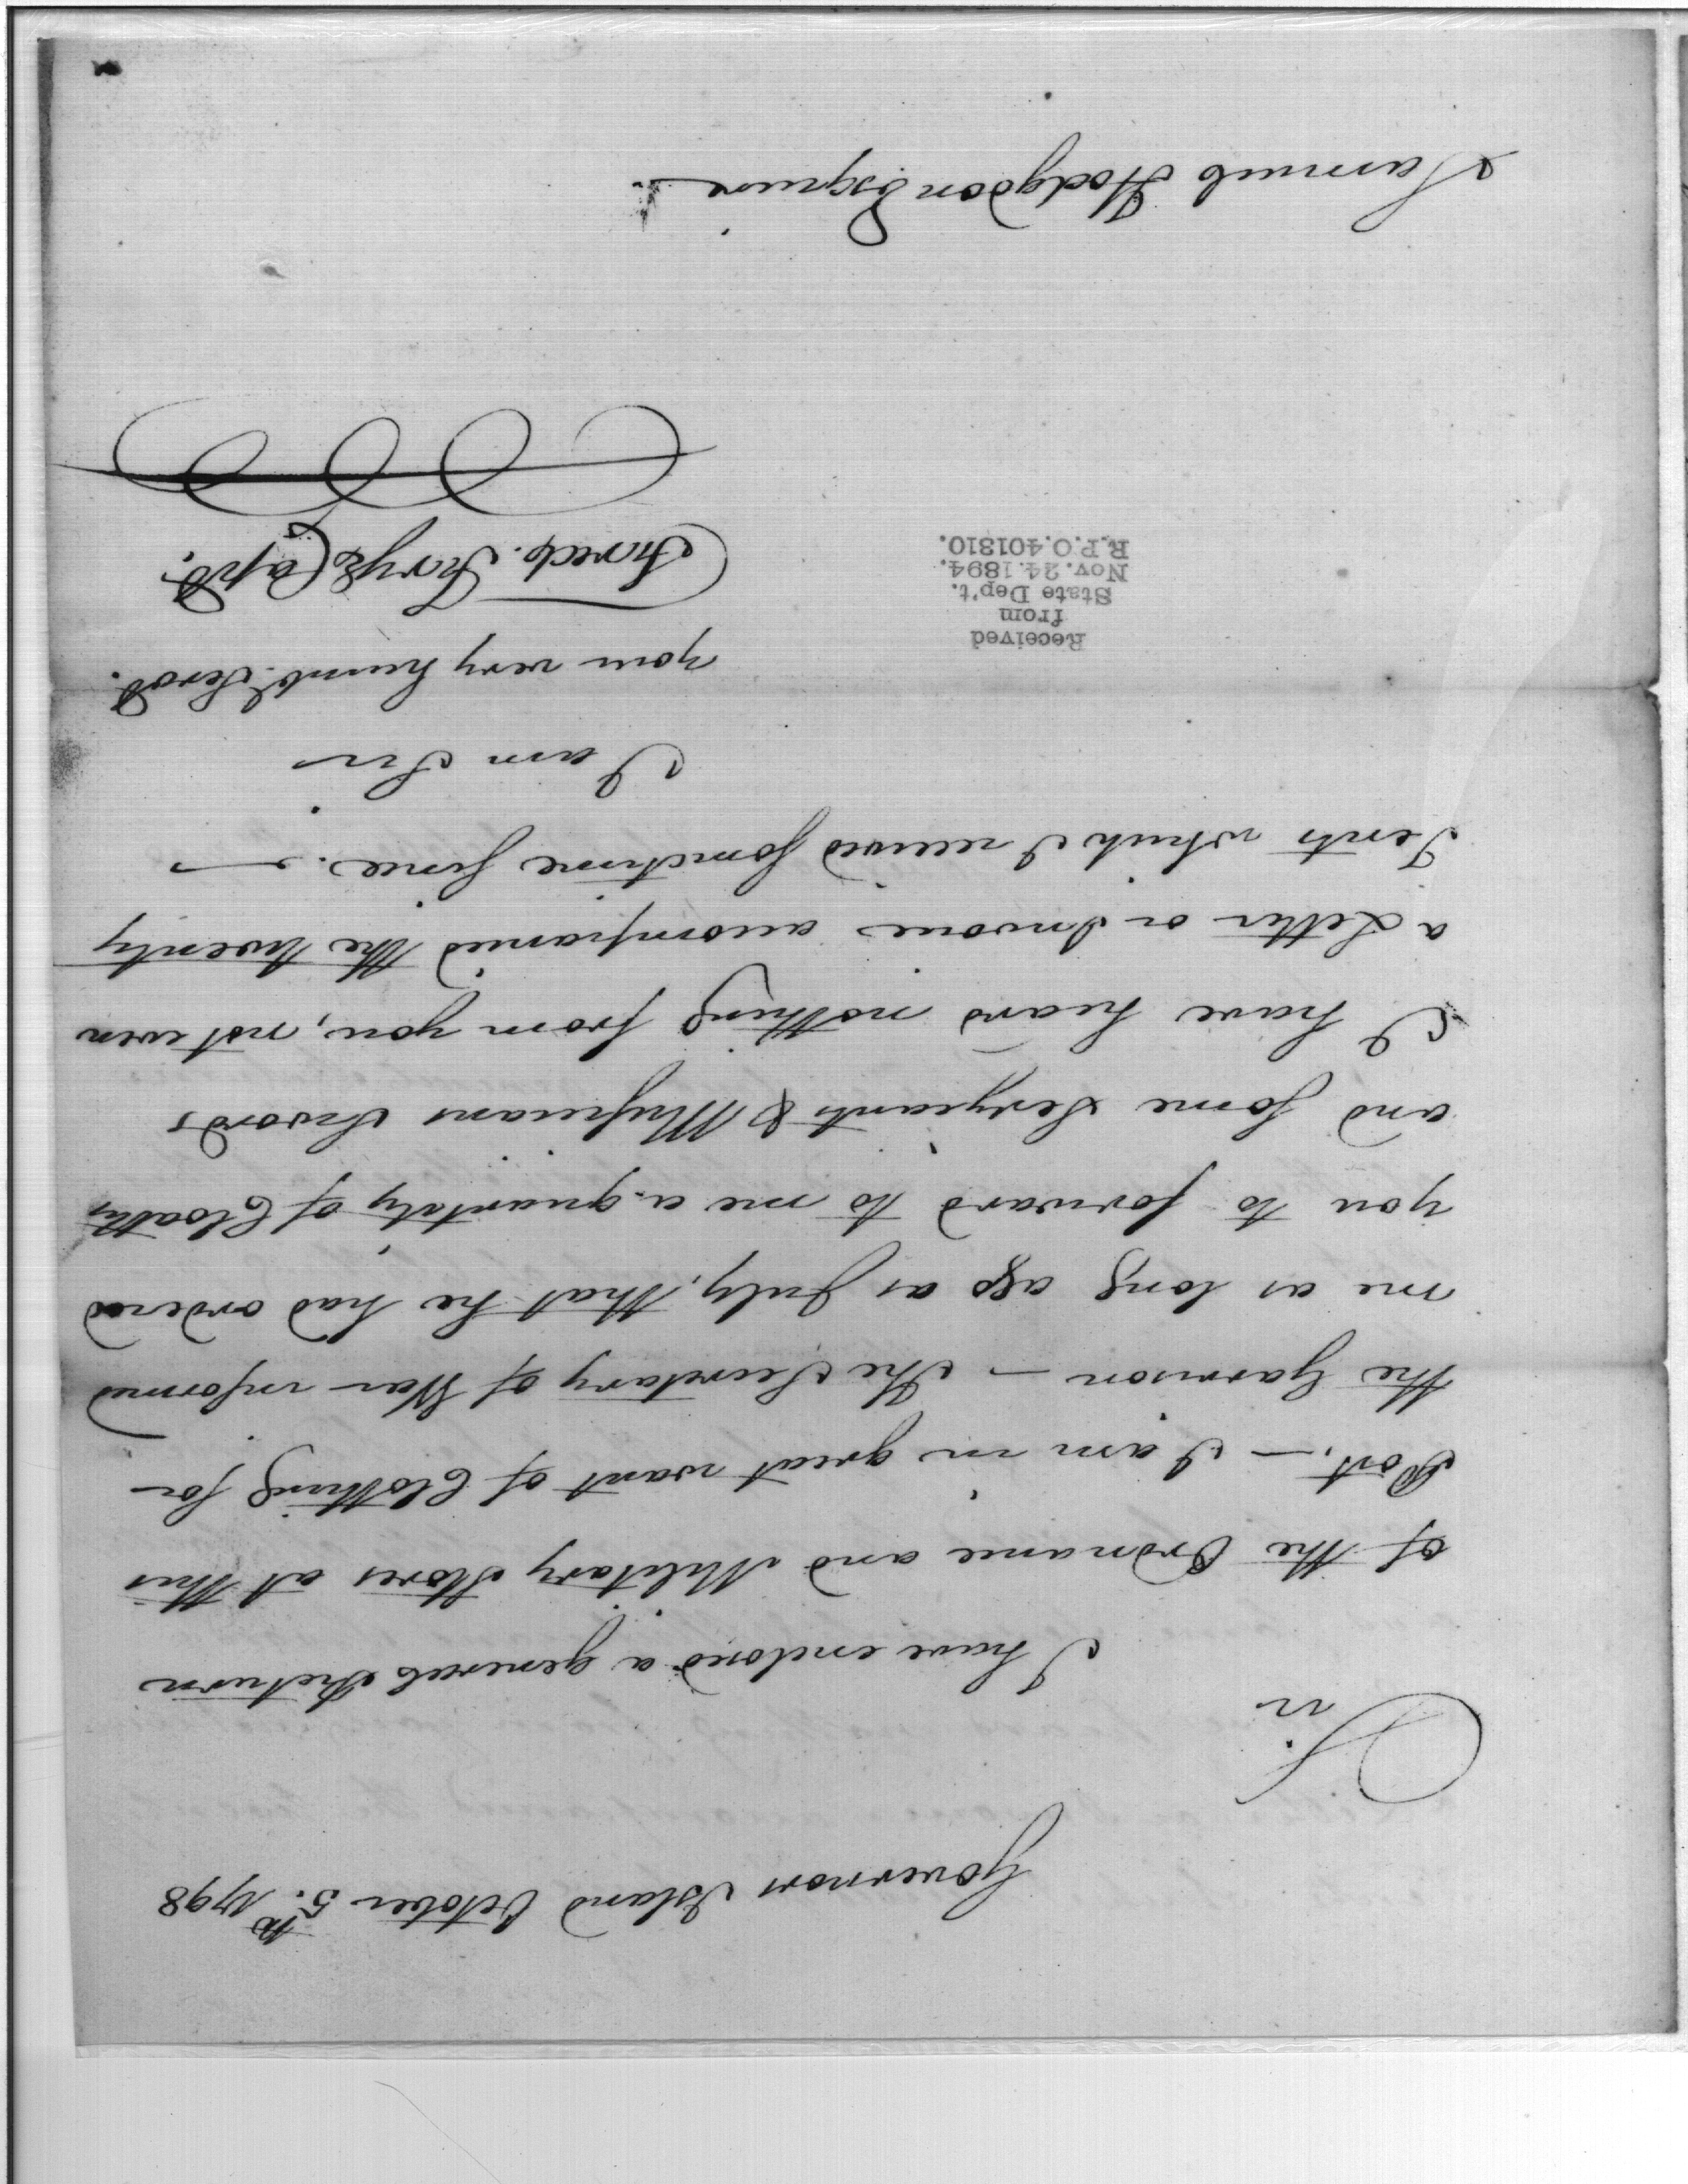 Governors Island October 5th. 1798
Sir
I have enclosed a general Return
of the Ordnance and Military Stores at this
Post. — I am in great want of Clothing for
the Garrison — The Secretary of War informed
me as long ago as July, that he had ordered
you to forward to me a quantity of Cloaths
and some Sergeants & Musicians Swords
I have heard nothing from you, not even
a Letter or Invoice accompanied the twenty
Tents which I received sometime since. —
I am Sir
your very humb. Servt.
Fredk. Frye Capt.
Received
from
State Dep't.
Nov. 24. 1894.
R.P.O. 401810.
Samuel Hodgdon Esquire